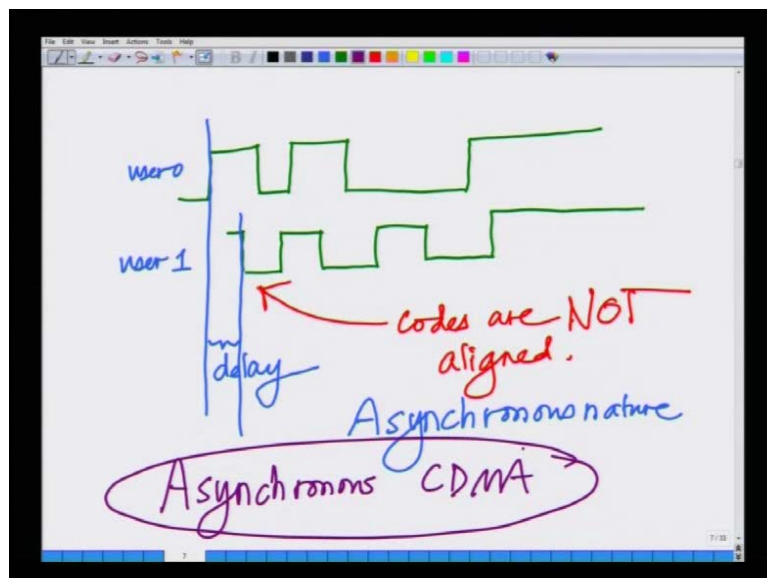 File Edit View Insert Actions Tools Help
user 0
user 1
codes are NOT
aligned.
delay
Asynchronous nature
Asynchronous CDMA
7/33
7